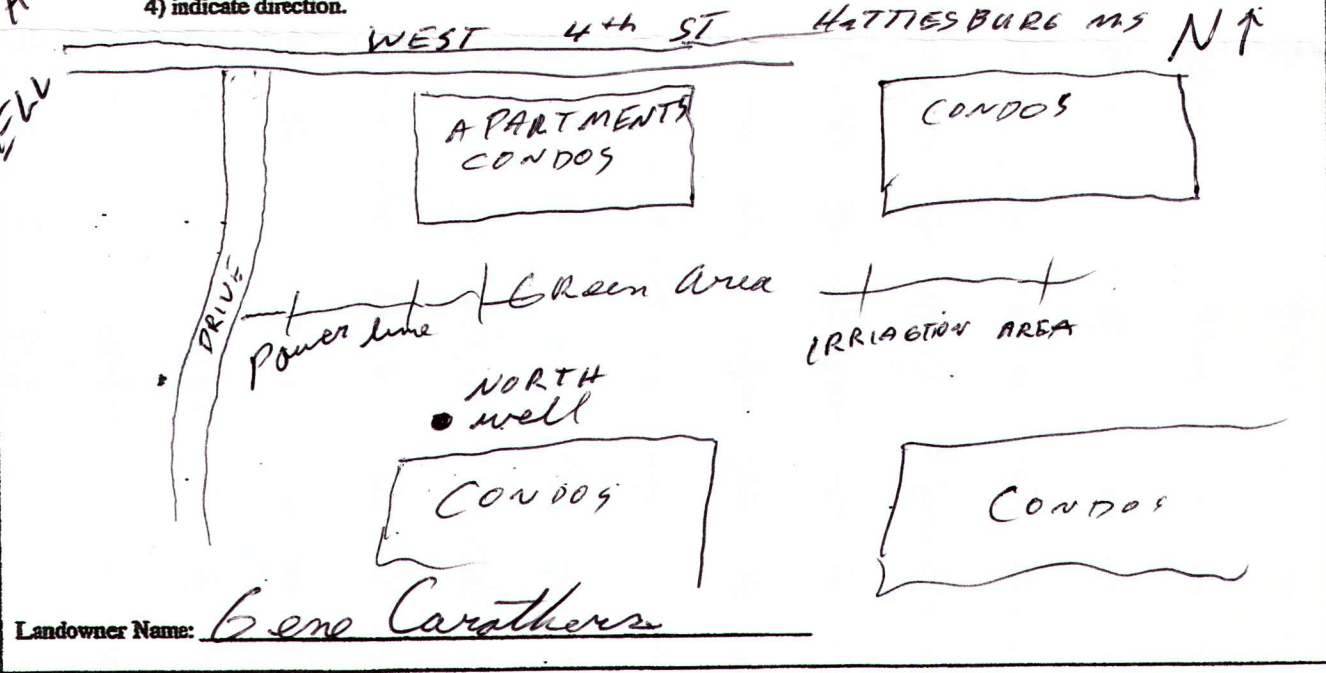 4) indicate direction.
WEST 4th ST HATTIESBURG MS N ↑
ELL
APARTMENTS
CONDOS
CONDOS
DRIVE
Power line
GReen Area
IRRIAGTION AREA
NORTH
well
CONDOS
CONDOS
Landowner Name: Gene Carothers